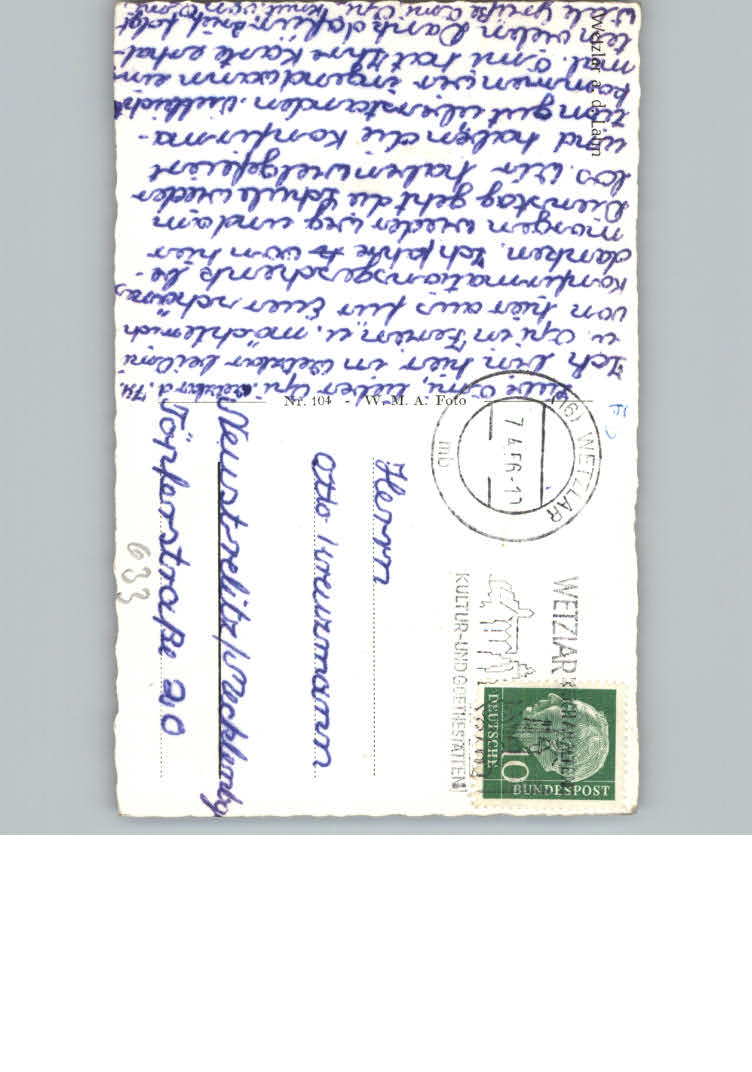 Wetzlar a. d. Lahn
Wetzlar d. 7.4.
Liebe Omi, lieber Opi.
Ich bin hier in Wetzlar bei Omi
u. Opi in Ferien u. möchte mich
von hier aus für Euer schönes
Konfirmationsgeschenk be-
danken. Ich fahre von hier
morgen wieder weg und am
Dienstag geht die Schule wieder
los. Wir haben viel gefeiert
und haben die Konfirma-
tion gut überstanden. Vielleicht
kommen wir irgendwann ein-
mal. Omi hat Ihre Karte erhal-
ten vielen Dank dafür, Brief folgt
Viele Grüße Omi Opi
Nr. 104 - W. M. A. Foto
(16) WETZLAR
7.4.56-17
mb
WETZLAR
KULTUR- UND GOETHESTÄTTEN
DEUTSCHE
BUNDESPOST
10
Herrn
Otto Kreuzmann
Neustrelitz/Mecklenbg
Töpferstraße 20
633